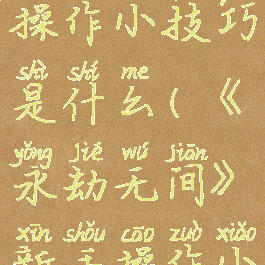 操作小技巧
shì shí me
是什么(《
yǒng jié wú jiān
永劫无间》
xīn shǒu cāo zuò xiǎo
新手操作小